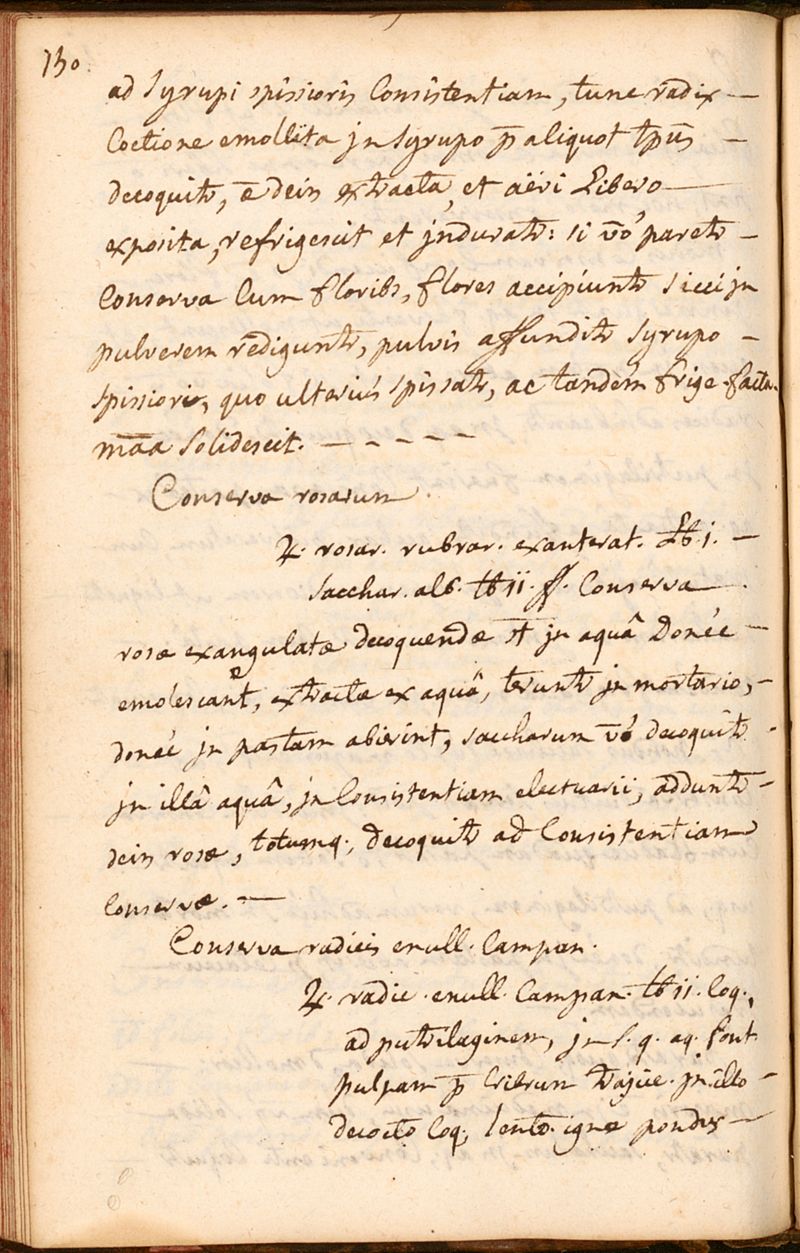 130.
ad Syrupi spissioris Consistentiam, tunc radix —
Coctione emollita jn Syrupo p̄ aliquot tp̄us —
decoquitr, ē dein extracta, et aëri Libero —
exposita, refrigescit et jnduratr: si v̄o paretr —
Conserva Cum floribs, flores accipiuntr sicci jn
pulverem rediguntr, pulvis affunditr Syrupo —
spissiori, quo ulteriús spissatr, ac tandém frige-facta
māa Solidescit. — — — — —
Conserva rosarum.
♃. rosar. rubrar. exanterat. ℔.j. —
sacchar. alb. ℔ij. ff. Conserva —.
rosæ exangulatæ decoquendæ st̄ jn aquâ Donéc —
emolescant, extractæ ex aquâ, teruntr jn mortario, —
donéc jn pastam abierint, saccharum v̄o decoquitr -
jn illâ aquâ, jn Consistentiam electuarii, adduntr —
dein rosæ, totumq., decoquitr ad Consistentiam
Conservæ. —
Conserva radicis enull. Campan.
♃. radic. enull. Campan. ℔ij. Coq.,
ad putrilaginem, jn s. q. aq. font
pulpam p̄ Cribrum trajice. jn illo —
decocto Coq, lento igne pondus —